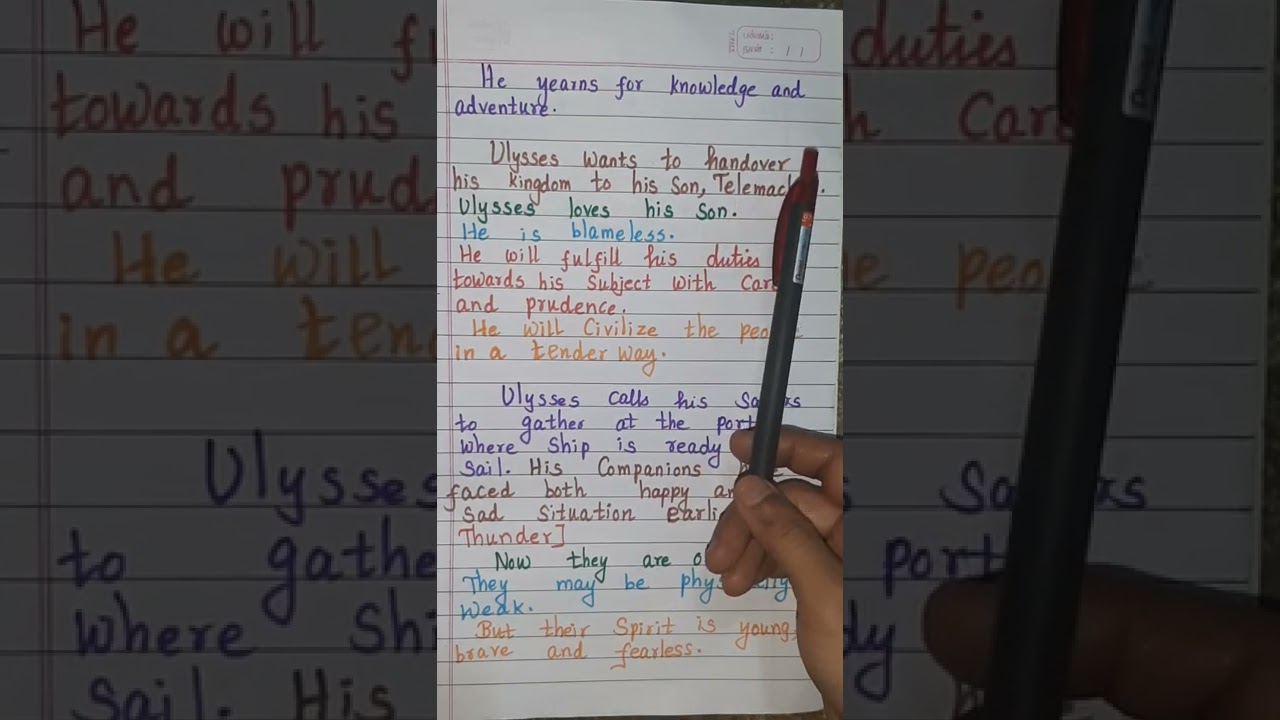 He yearns for knowledge and
adventure.
Ulysses wants to handover
his kingdom to his Son,
Ulysses loves his Son.
He is blameless.
He will fulfill his duties
towards his Subject with
and prudence.
He will Civilize the
in a tender way.
Ulysses calls his
to gather at the port
where Ship is ready
Sail. His Companions
faced both happy
Sad Situation
Thunder]
Now they are
They may be
weak.
But their Spirit is young,
brave and fearless.